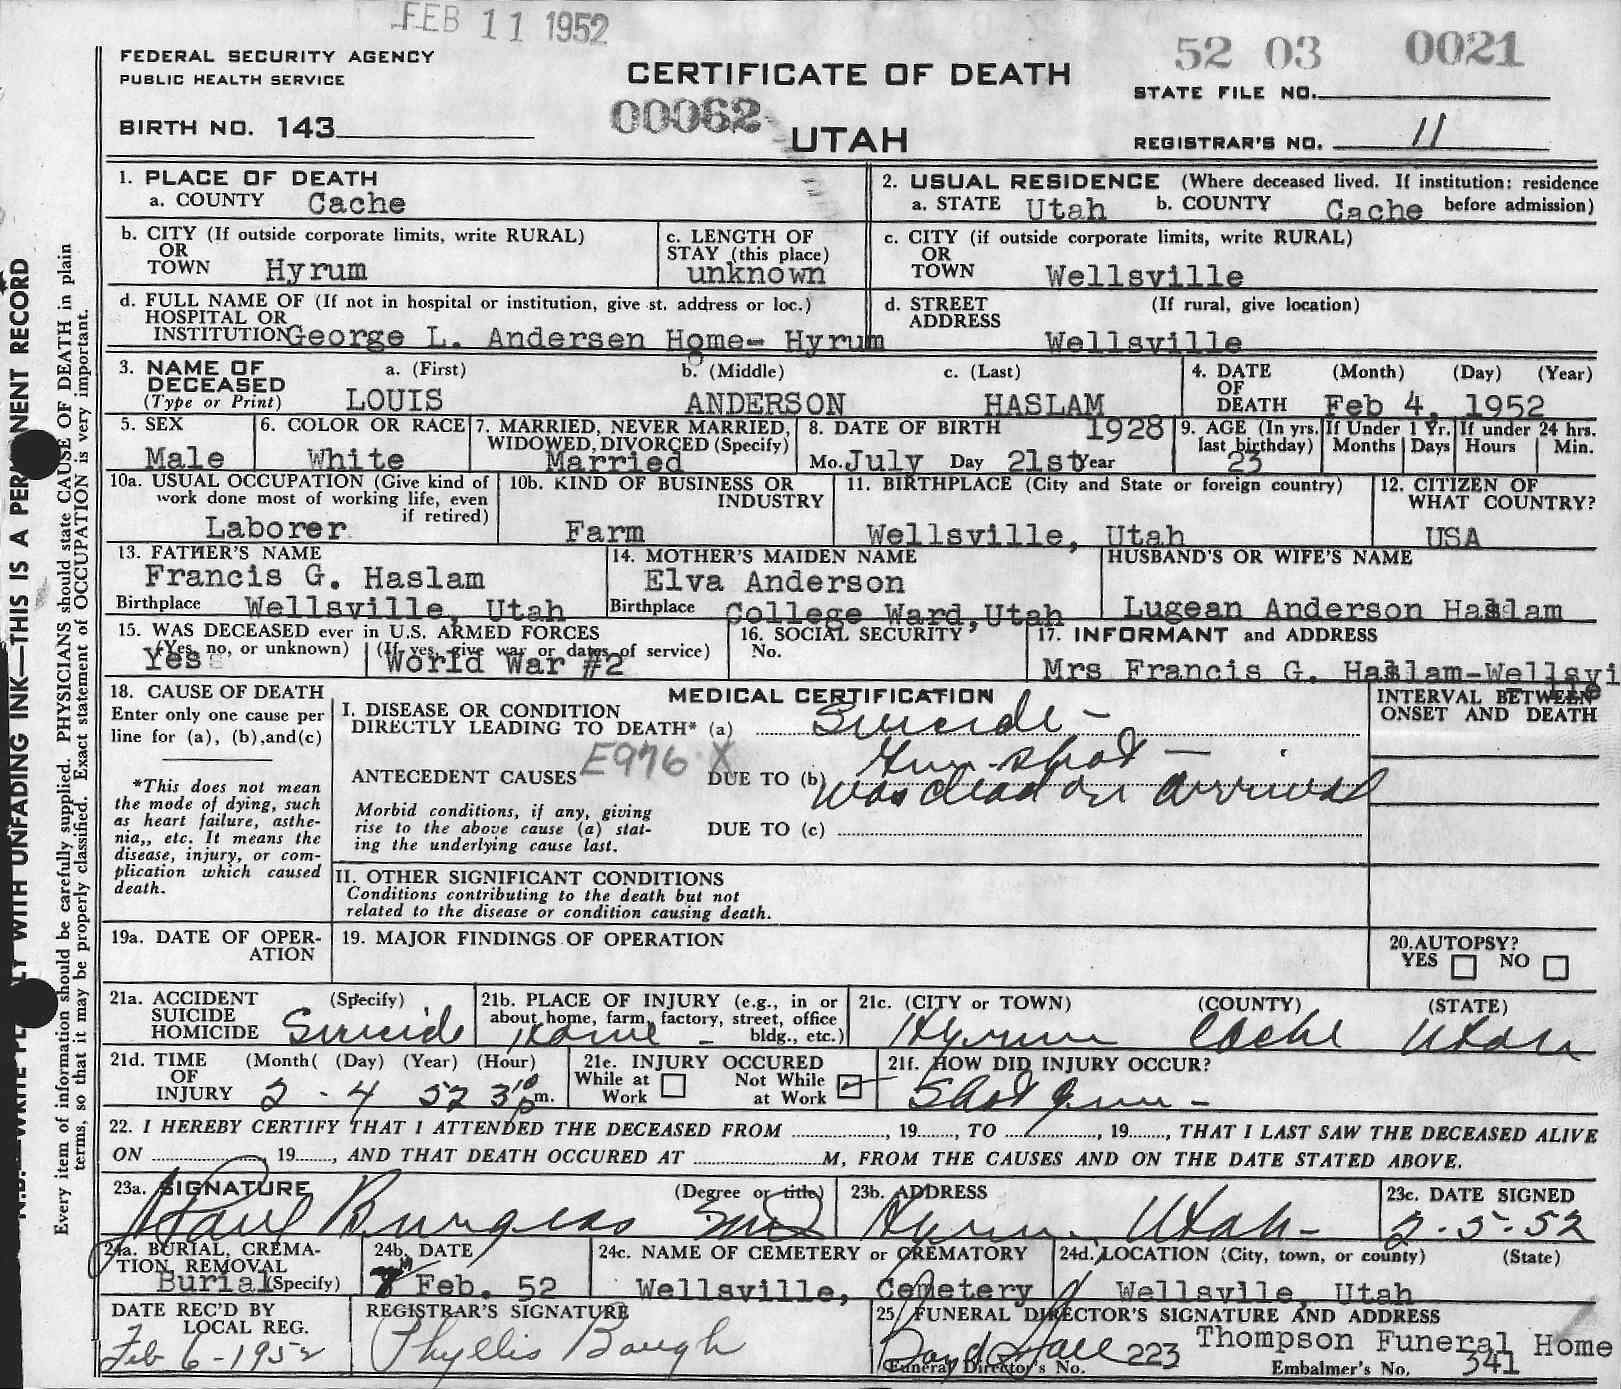 FEB 11 1952
FEDERAL SECURITY AGENCY
PUBLIC HEALTH SERVICE
CERTIFICATE OF DEATH
52 03 0021
STATE FILE NO.
BIRTH NO. 143
00062
UTAH
REGISTRAR'S NO. 11
1. PLACE OF DEATH
a. COUNTY Cache
2. USUAL RESIDENCE (Where deceased lived. If institution: residence before admission)
a. STATE Utah b. COUNTY Cache
b. CITY (If outside corporate limits, write RURAL)
OR
TOWN Hyrum
c. LENGTH OF
STAY (this place)
unknown
c. CITY (if outside corporate limits, write RURAL)
OR
TOWN Wellsville
d. FULL NAME OF (If not in hospital or institution, give st. address or loc.)
HOSPITAL OR
INSTITUTION George L. Andersen Home- Hyrum
d. STREET (If rural, give location)
ADDRESS
Wellsville
3. NAME OF
DECEASED
(Type or Print)
a. (First) b. (Middle) c. (Last)
LOUIS ANDERSON HASLAM
4. DATE (Month) (Day) (Year)
OF
DEATH Feb 4, 1952
5. SEX
Male
6. COLOR OR RACE
White
7. MARRIED, NEVER MARRIED,
WIDOWED, DIVORCED (Specify)
Married
8. DATE OF BIRTH 1928
Mo. July Day 21st Year
9. AGE (In yrs.
last birthday)
23
If Under 1 Yr.
Months Days
If under 24 hrs.
Hours Min.
10a. USUAL OCCUPATION (Give kind of
work done most of working life, even
if retired)
Laborer
10b. KIND OF BUSINESS OR
INDUSTRY
Farm
11. BIRTHPLACE (City and State or foreign country)
Wellsville, Utah
12. CITIZEN OF
WHAT COUNTRY?
USA
13. FATHER'S NAME
Francis G. Haslam
Birthplace Wellsville, Utah
14. MOTHER'S MAIDEN NAME
Elva Anderson
Birthplace College Ward, Utah
HUSBAND'S OR WIFE'S NAME
Lugean Anderson Haslam
15. WAS DECEASED ever in U.S. ARMED FORCES
(Yes, no, or unknown) (If yes, give war or dates of service)
Yes World War #2
16. SOCIAL SECURITY
No.
17. INFORMANT and ADDRESS
Mrs Francis G. Haslam-Wellsvi
lle
18. CAUSE OF DEATH
Enter only one cause per
line for (a), (b),and(c)
*This does not mean
the mode of dying, such
as heart failure, asthe-
nia,, etc. It means the
disease, injury, or com-
plication which caused
death.
MEDICAL CERTIFICATION
I. DISEASE OR CONDITION
DIRECTLY LEADING TO DEATH* (a) Suicide -
E976 X
ANTECEDENT CAUSES DUE TO (b) Gun-shot -
was dead on arrival
Morbid conditions, if any, giving
rise to the above cause (a) stat-
ing the underlying cause last.
DUE TO (c)
INTERVAL BETWEEN
ONSET AND DEATH
II. OTHER SIGNIFICANT CONDITIONS
Conditions contributing to the death but not
related to the disease or condition causing death.
19a. DATE OF OPER-
ATION
19. MAJOR FINDINGS OF OPERATION
20. AUTOPSY?
YES NO
21a. ACCIDENT (Specify)
SUICIDE
HOMICIDE Suicide
21b. PLACE OF INJURY (e.g., in or
about home, farm, factory, street, office
bldg., etc.)
Home -
21c. (CITY or TOWN) (COUNTY) (STATE)
Hyrum Cache Utah
21d. TIME (Month( (Day) (Year) (Hour)
OF
INJURY 2 - 4 52 3 10 p m.
21e. INJURY OCCURED
While at Work
Not While at Work
21f. HOW DID INJURY OCCUR?
Shot gun -
22. I HEREBY CERTIFY THAT I ATTENDED THE DECEASED FROM , 19 , TO , 19 , THAT I LAST SAW THE DECEASED ALIVE
ON , 19 , AND THAT DEATH OCCURED AT M, FROM THE CAUSES AND ON THE DATE STATED ABOVE.
23a. SIGNATURE (Degree or title)
Paul Burgess MD
23b. ADDRESS
Hyrum Utah -
23c. DATE SIGNED
2-5-52
24a. BURIAL, CREMA-
TION, REMOVAL
Burial (Specify)
24b. DATE
Feb. 52
24c. NAME OF CEMETERY or CREMATORY
Wellsville, Cemetery
24d. LOCATION (City, town, or county) (State)
Wellsvlle, Utah
DATE REC'D BY
LOCAL REG.
Feb 6-1952
REGISTRAR'S SIGNATURE
Phyllis Baugh
25. FUNERAL DIRECTOR'S SIGNATURE AND ADDRESS
Boyd Hall 223 Thompson Funeral Home
Funeral Director's No. Embalmer's No. 341
WITH UNFADING INK—THIS IS A PERMANENT RECORD
Every item of information should be carefully supplied. PHYSICIANS should state CAUSE OF DEATH in plain
terms, so that it may be properly classified. Exact statement of OCCUPATION is very important.